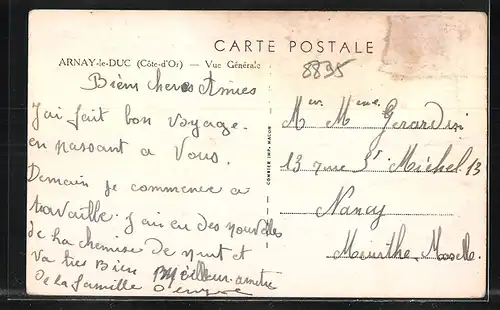 CARTE POSTALE
ARNAY-le-DUC (Côte-d'Or) — Vue Générale
8895
Bièns cheres Amies
J'ai fait bon voyage.
en passant a Vous.
Demain je commence a
travaille. J'ai eu des nouvelles
de la chemise de nuit et
va tres Bien Meilleur amitie
de la famille
COMBIER IMP. MACON
Mr Mme Gerardin
13 rue St Michel 13
Nancy
Meurthe Moselle